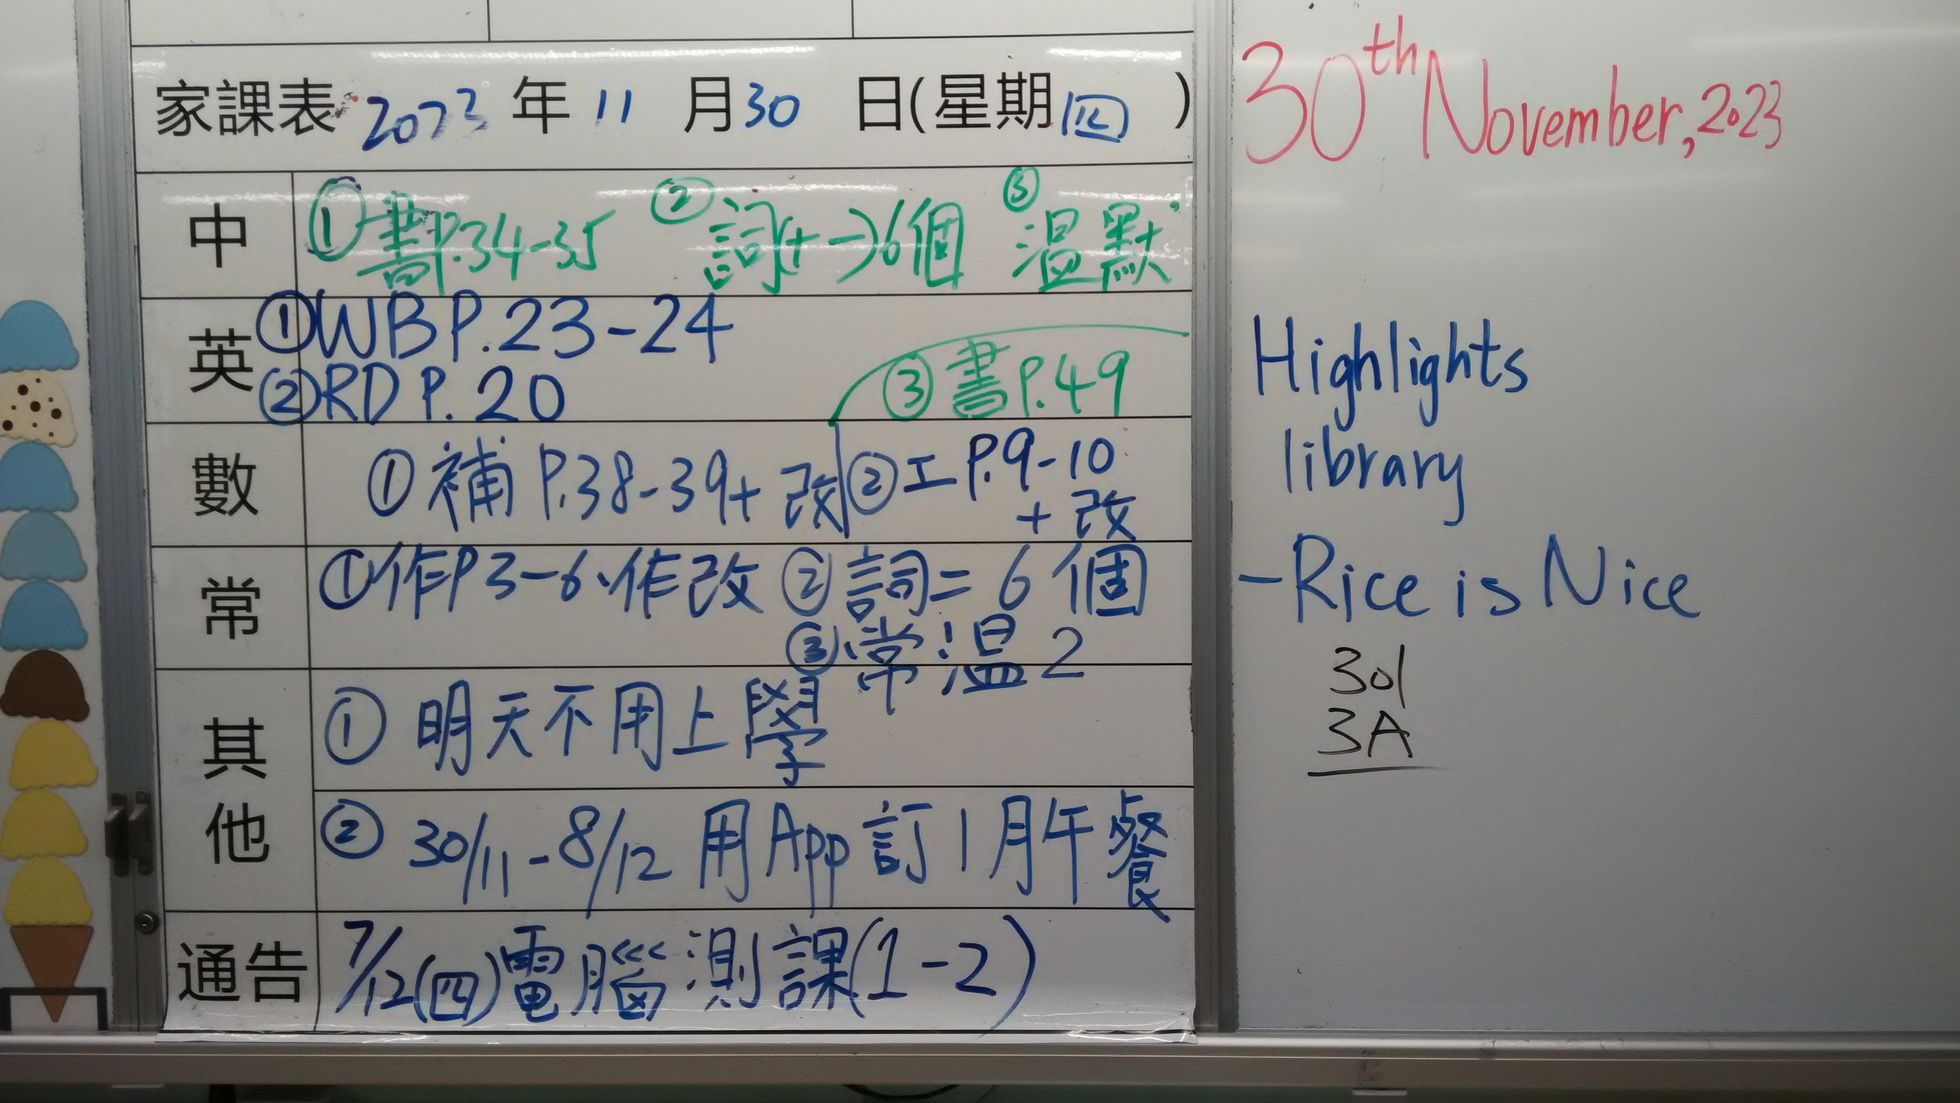 家課表 2023 年 11 月 30 日(星期四)
中 ①書P.34-35 ②詞(十一)6個 ③溫默
英 ①WB P.23-24
②RD P.20
③書P.49
數 ①補 P.38-39+改 ②工 P.9-10
+改
常 ①作P3-6、作改 ②詞=6個
③常溫2
其他 ①明天不用上學
② 30/11-8/12 用App訂1月午餐
通告 7/12(四)電腦測課(1-2)
30th November, 2023
Highlights
library
-Rice is Nice
301
3A